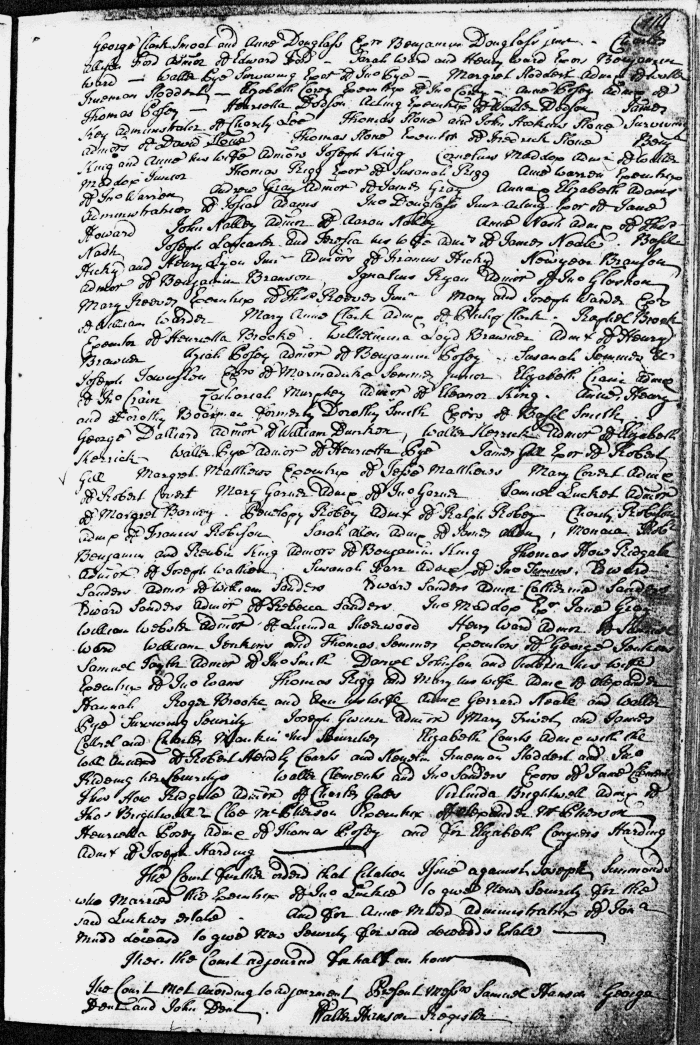 George Clark Smoot and Anne Douglass Exrs Benjamin Douglass junr. Charles
Ford Admor of Edward Ford - Sarah Ward and Henry Ward Exors Benjamin
Ward - Walter Pye Surviving Exor of Jno Pye - Margret Stoddert Admx of Walter
Trueman Stoddert - Elizabeth Corry Executrix of Jno Corry - Anne Posey Admx of
Thomas Posey - Henrietta Dodson Acting Executrix of Walter Dodson James
Key Administrator of Charity Lee Thomas Stone and John Hoskins Stone Surviving
Admors of David Stone Thomas Stone Executor of Fredrick Stone
King and Anne his wife Admors Joseph King Cornelius Maddox Admr of Walter
Maddox Junior Thomas Rigg Exor of Susanah Rigg Ann Warren Executrix
of Jno Warren Andrew Gray Admor of James Gray Anna Elizabeth Adams
Administratrix of Josias Adams Jno Douglass Junr Acting Exor of Jane
Howard John Nalley Admor of Aaron Nalley Anne Nash Admx of Thos
Nash Joseph Lancaster and Teresia his wife Admx of James Neale. Basil
Hicky and Henry Lyon Junr Admors of Francis Hicky Newyear Branson
Admor of Benjamin Branson Ignatius Ryan Admor of Jno Glaskon
Mary Reeves Executrix of Thos Reeves Junr Mary and Joseph Warder Exrs
of William Warder Mary Anne Clark Admx of Philip Clark Raphiel Brook
Executor of Henrietta Brooke. Wilhelmina Loyd Brawner Admx of Henry
Brawner Uriah Posey Admor of Benjamin Posey. Susanah Semmes &
Joseph Townslow Exors of Marmaduke Semmes Junior Elizabeth Crain Admx
of Jno Crain Zachariah Murphey Admor of Eleanor King. Anne Heary
and Dorothy Boarman formerly Dorothy Smith Exors of Basil Smith
George Dalliard Admor of William Dunkon, Walter Merrick Admor of Elizabeth
Merrick Walter Pye Admor of Henrietta Pye James Gill Exor of Robert
Gill Margret Matthews Executrix of Jesse Matthews Mary Covert Admx
of Robert Covert Mary Garner Admx of Jno Garner Samuel Lucket Admor
of Margret Barney. Penelopy Robey Admx of Ralph Robey Charity Robison
Admx of Francis Robison Sarah Allen Admx of James Allen, Monica
Benjamin and Reubin King Admors of Benjamin King Thomas How Ridgate
Admor of Joseph Walton. Susanah Farr Admx of Jno Timms, Edward
Sanders Admor of William Sanders Edward Sanders Admor Catherine Sanders
Edward Sanders Admor of Rebecca Sanders. Jno Maddox Exr Jane Gray
William Webster Admor of Lucinda Sherwood Henry Ward Admor of
Ward William Jenkins and Thomas Semmes Executors of George Jenkins
Samuel Taylor Admor of Jno Smith Daniel Johnson and his wife
Executrix of Jno Evans Thomas Rigg and Mary his wife Admx of Alexander
Hannah Roger Brooke and Ann his wife Admx Gerrard Neale and Walter
Pye Surviving Security Joseph Gwinn Admor Mary and James
Cottrel and Charles Mankin his Security Elizabeth Courts Admx with the
will annexed of Robert Hendly Courts and Trueman Stoddert and Jno
her Securitys Walter Clements and Jno Sanders Exors of Jane Clements
Thos How Ridgate Admor of Charles Gates Verlinda Brightwell Admx of
Thos Brightwell Cloe McPherson Executrix of Alexander McPherson
Henrietta Posey Admx of Thomas Posey and for Elizabeth Conyers Harding
Admx of Joseph Harding
The Court further orderd that Citation Issue against Joseph Simmonds
who Married the Executrix of Jno Luckie to give New Security for the
said Luckies estate. And for Anne Mudd Administratrix of Jona
Mudd deceasd to give New Security for said deceaseds Estate
Then the Court adjournd for half an hour
The Court Met according to adjournment Present Messrs Samuel Hanson George
Dent and John Dent Walter Hanson Register